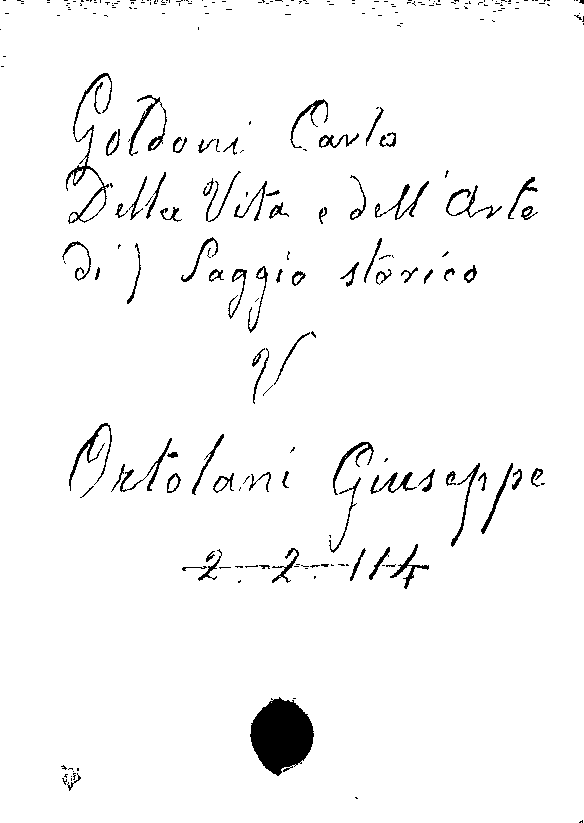 Goldoni Carlo
Della Vita e dell'Arte
di) Saggio storico
V
Ortolani Giuseppe
2. 2. 114